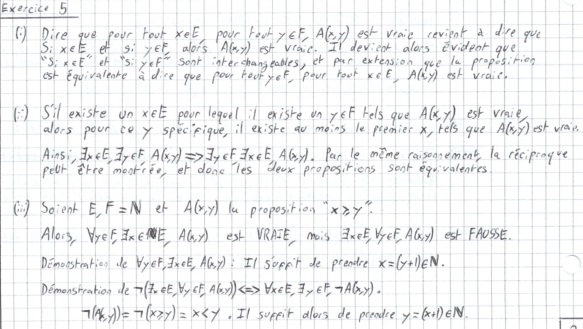 Exercice 5
(i) Dire que pour tout x∈E, pour tout y∈F, A(x,y) est vraie revient à dire que
Si x∈E et si y∈F, alors A(x,y) est vraie. Il devient alors évident que
"Si x∈E" et "si y∈F" sont interchangeables, et par extension que la proposition
est équivalente à dire que pour tout y∈F, pour tout x∈E, A(x,y) est vraie.
(ii) S'il existe un x∈E pour lequel il existe un y∈F tels que A(x,y) est vraie,
alors pour ce y spécifique, il existe au moins le premier x, tels que A(x,y) est vraie.
Ainsi, ∃x∈E, ∃y∈F, A(x,y) => ∃y∈F, ∃x∈E, A(x,y). Par le même raisonnement, la réciproque
peut être montrée, et donc les deux propositions sont équivalentes.
(iii) Soient E, F = ℕ et A(x,y) la proposition "x≥y".
Alors, ∀y∈F, ∃x∈E, A(x,y) est VRAIE, mais ∃x∈E, ∀y∈F, A(x,y) est FAUSSE.
Démonstration de ∀y∈F, ∃x∈E, A(x,y) : Il suffit de prendre x=(y+1)∈ℕ.
Démonstration de ¬(∃x∈E, ∀y∈F, A(x,y)) <=> ∀x∈E, ∃y∈F, ¬A(x,y).
¬(A(x,y)) = ¬(x≥y) = x<y. Il suffit alors de prendre y=(x+1)∈ℕ.